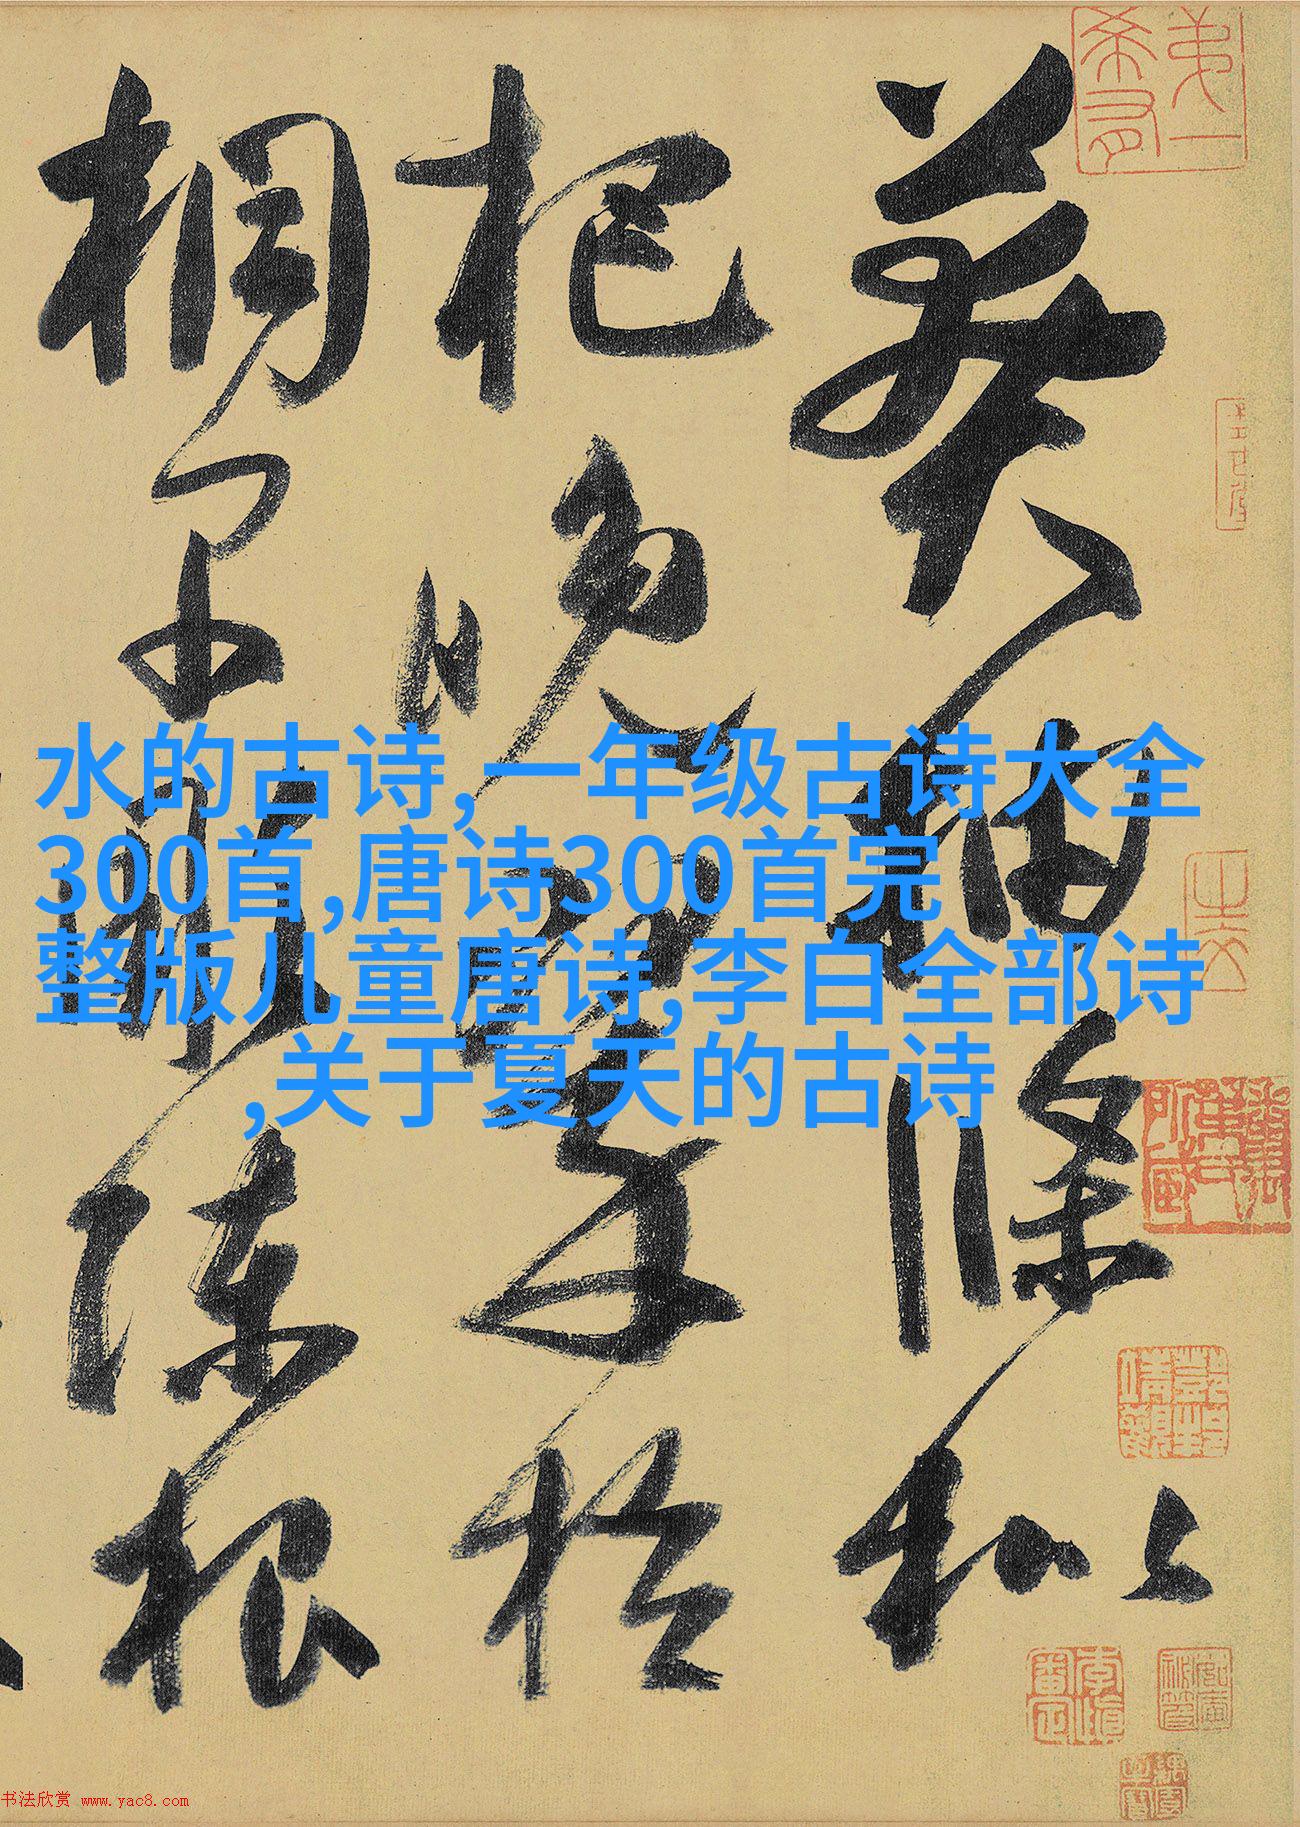 莽抽條枇
杷晚翠梧
桐早凋陳根
水的古诗,一年级古诗大全
300首,唐诗300首完
整版儿童唐诗,李白全部诗
,关于夏天的古诗
书法欣赏 www.yac8.com